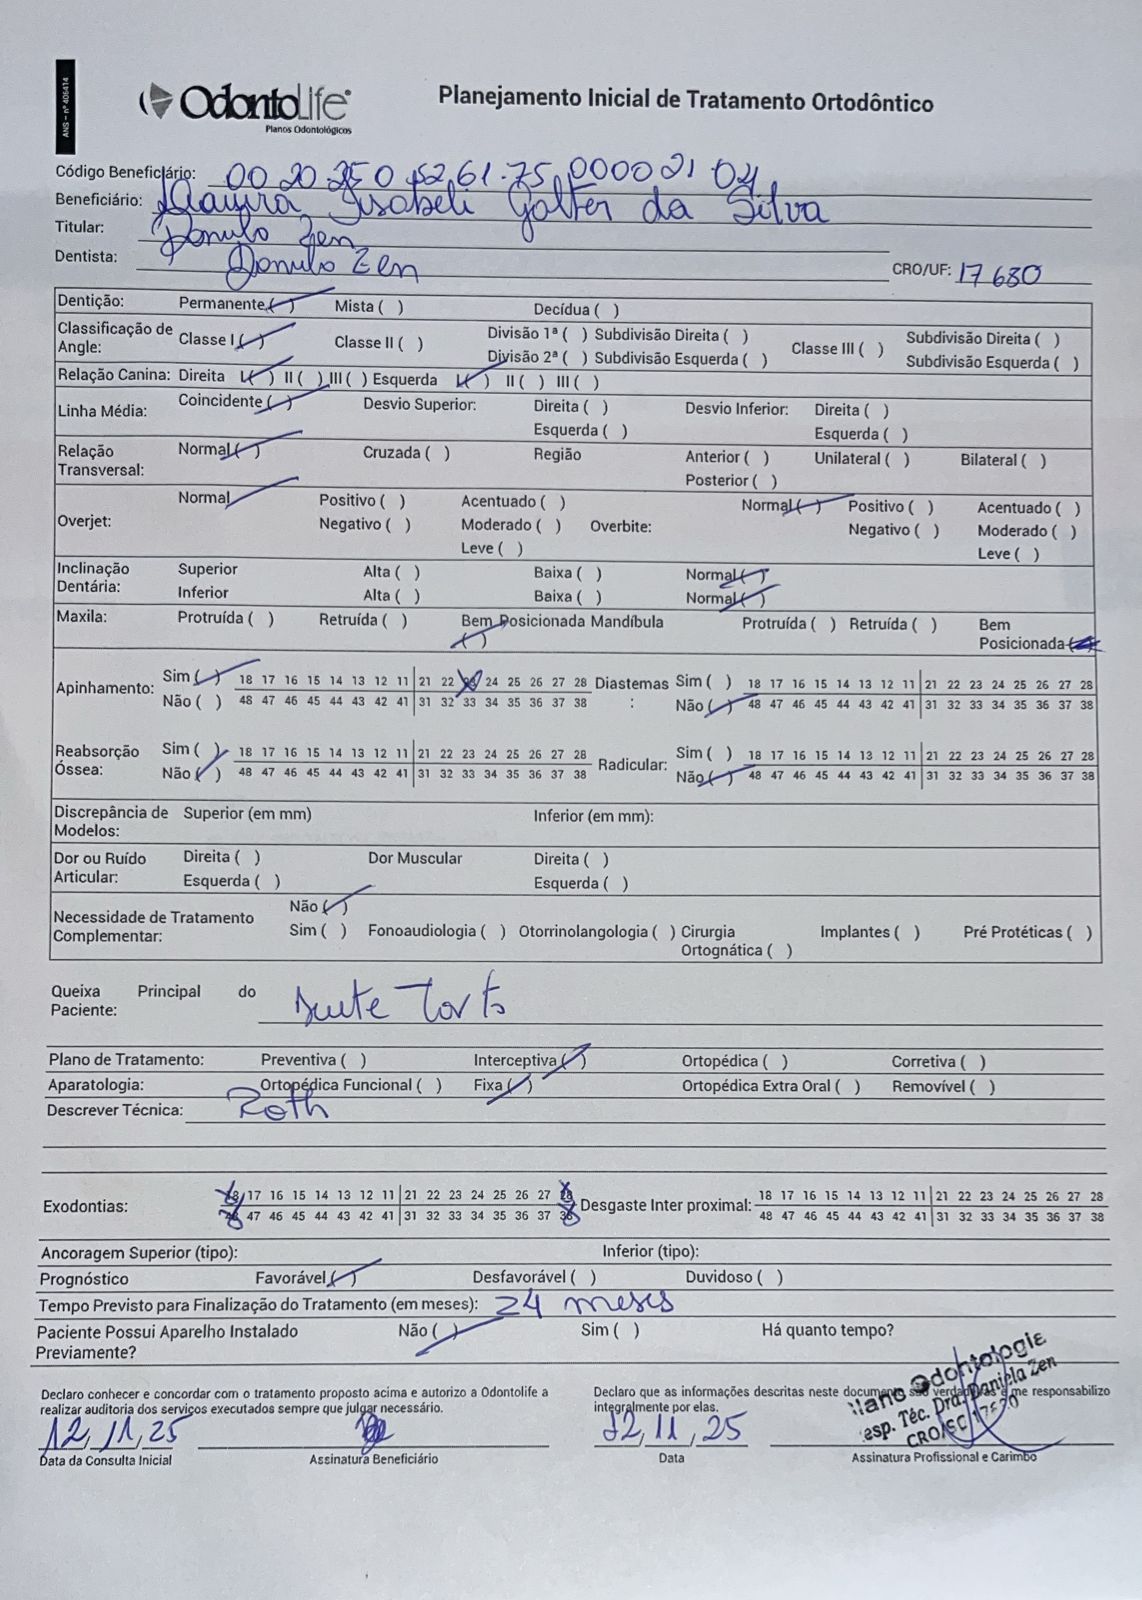 ANS – nº 406414
OdontoLife
Planos Odontológicos
Planejamento Inicial de Tratamento Ortodôntico
Código Beneficiário: 00 20 250 52 61.75 0000 21 04
Beneficiário: Isabeli Galter da Silva
Titular: Zen
Dentista: Zen CRO/UF: 17 680
Dentição: Permanente (✓) Mista ( ) Decídua ( )
Classificação de Angle: Classe I (✓) Classe II ( ) Divisão 1ª ( ) Subdivisão Direita ( ) Divisão 2ª ( ) Subdivisão Esquerda ( ) Classe III ( ) Subdivisão Direita ( ) Subdivisão Esquerda ( )
Relação Canina: Direita I (✓) II ( ) III ( ) Esquerda I (✓) II ( ) III ( )
Linha Média: Coincidente (✓) Desvio Superior: Direita ( ) Desvio Inferior: Direita ( )
Esquerda ( ) Esquerda ( )
Relação Transversal: Normal (✓) Cruzada ( ) Região Anterior ( ) Unilateral ( ) Bilateral ( )
Posterior ( )
Overjet: Normal Positivo ( ) Acentuado ( ) Overbite: Normal (✓) Positivo ( ) Acentuado ( )
Negativo ( ) Moderado ( ) Negativo ( ) Moderado ( )
Leve ( ) Leve ( )
Inclinação Dentária: Superior Alta ( ) Baixa ( ) Normal (✓)
Inferior Alta ( ) Baixa ( ) Normal (✓)
Maxila: Protruída ( ) Retruída ( ) Bem Posicionada (✓) Mandíbula Protruída ( ) Retruída ( ) Bem Posicionada (✓)
Apinhamento: Sim (✓) 18 17 16 15 14 13 12 11 21 22 23 24 25 26 27 28 Diastemas : Sim ( ) 18 17 16 15 14 13 12 11 21 22 23 24 25 26 27 28
Não ( ) 48 47 46 45 44 43 42 41 31 32 33 34 35 36 37 38 Não (✓) 48 47 46 45 44 43 42 41 31 32 33 34 35 36 37 38
Reabsorção Óssea: Sim ( ) 18 17 16 15 14 13 12 11 21 22 23 24 25 26 27 28 Radicular: Sim ( ) 18 17 16 15 14 13 12 11 21 22 23 24 25 26 27 28
Não (✓) 48 47 46 45 44 43 42 41 31 32 33 34 35 36 37 38 Não (✓) 48 47 46 45 44 43 42 41 31 32 33 34 35 36 37 38
Discrepância de Modelos: Superior (em mm) Inferior (em mm):
Dor ou Ruído Articular: Direita ( ) Dor Muscular Direita ( )
Esquerda ( ) Esquerda ( )
Necessidade de Tratamento Complementar: Não (✓)
Sim ( ) Fonoaudiologia ( ) Otorrinolangologia ( ) Cirurgia Ortognática ( ) Implantes ( ) Pré Protéticas ( )
Queixa Principal do Paciente: Dente Torto
Plano de Tratamento: Preventiva ( ) Interceptiva (✓) Ortopédica ( ) Corretiva ( )
Aparatologia: Ortopédica Funcional ( ) Fixa (✓) Ortopédica Extra Oral ( ) Removível ( )
Descrever Técnica: Roth
Exodontias: 18 17 16 15 14 13 12 11 21 22 23 24 25 26 27 28 Desgaste Inter proximal: 18 17 16 15 14 13 12 11 21 22 23 24 25 26 27 28
48 47 46 45 44 43 42 41 31 32 33 34 35 36 37 38 48 47 46 45 44 43 42 41 31 32 33 34 35 36 37 38
Ancoragem Superior (tipo): Inferior (tipo):
Prognóstico Favorável (✓) Desfavorável ( ) Duvidoso ( )
Tempo Previsto para Finalização do Tratamento (em meses): 24 meses
Paciente Possui Aparelho Instalado Previamente? Não (✓) Sim ( ) Há quanto tempo?
Declaro conhecer e concordar com o tratamento proposto acima e autorizo a Odontolife a
realizar auditoria dos serviços executados sempre que julgar necessário.
Declaro que as informações descritas neste documento são verdadeiras e me responsabilizo
integralmente por elas.
Odontologia
esp. Téc. Dra. Daniela Zen
CRO/SC
12, 11, 25
12, 11, 25
Data da Consulta Inicial Assinatura Beneficiário Data Assinatura Profissional e Carimbo